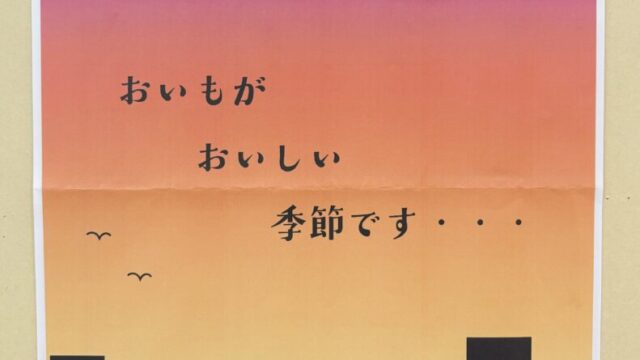 おいもが
おいしい
季節です・・・